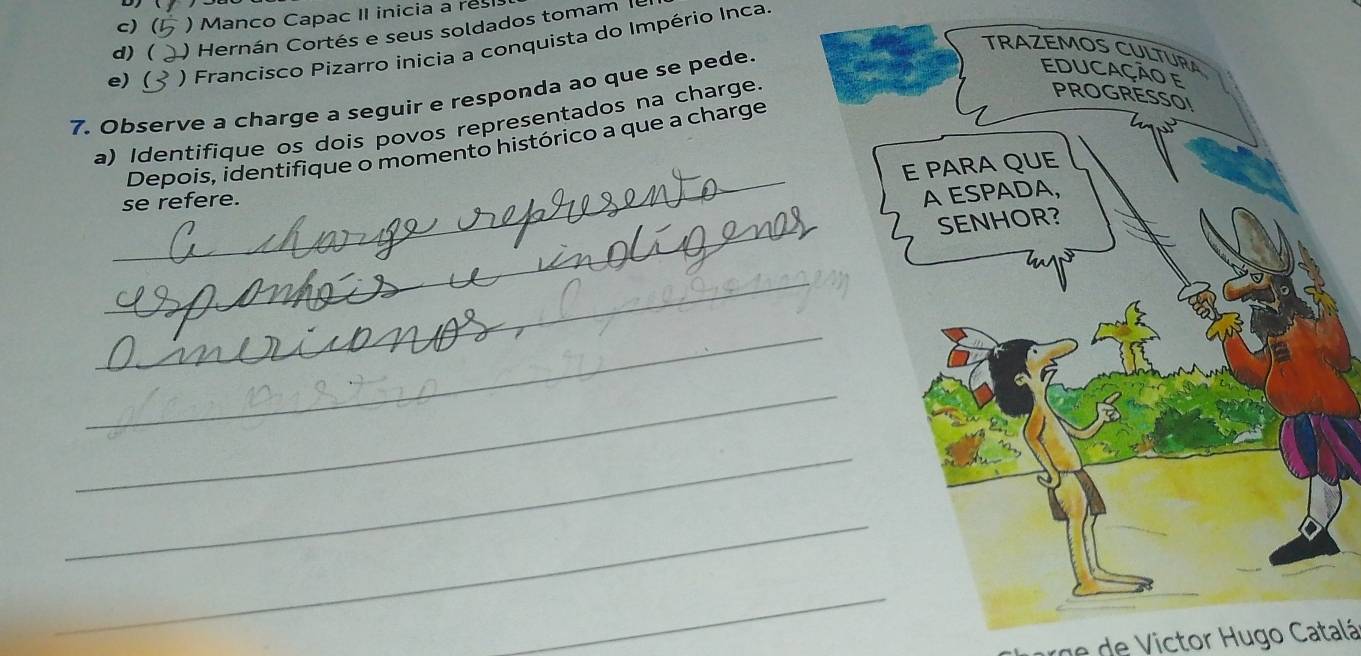 c) (5) Manco Capac II inicia a
d) (2) Hernán Cortés e seus soldados tomam
e) (3) Francisco Pizarro inicia a conquista do Império Inca.
7. Observe a charge a seguir e responda ao que se pede.
a) Identifique os dois povos representados na charge.
Depois, identifique o momento histórico a que a charge
se refere.
a charge representa
espanhois e indígenas
americanos,
TRAZEMOS CULTURA,
EDUCAÇÃO E
PROGRESSO!
E PARA QUE
A ESPADA,
SENHOR?
de Victor Hugo